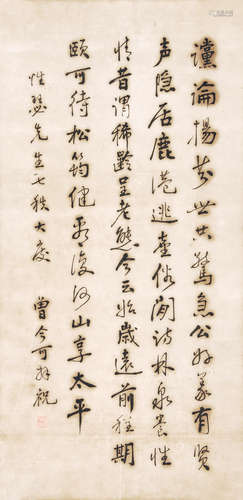 讜論揚芬世共驚急公好義有賢
声隐居鹿港逃塵俗閒林泉養性
情昔謂稀齡呈老態今云始歲遠前程期
頤可待松筠健看復河山享太平
性瑟先生七秩大慶 曾今可拜祝